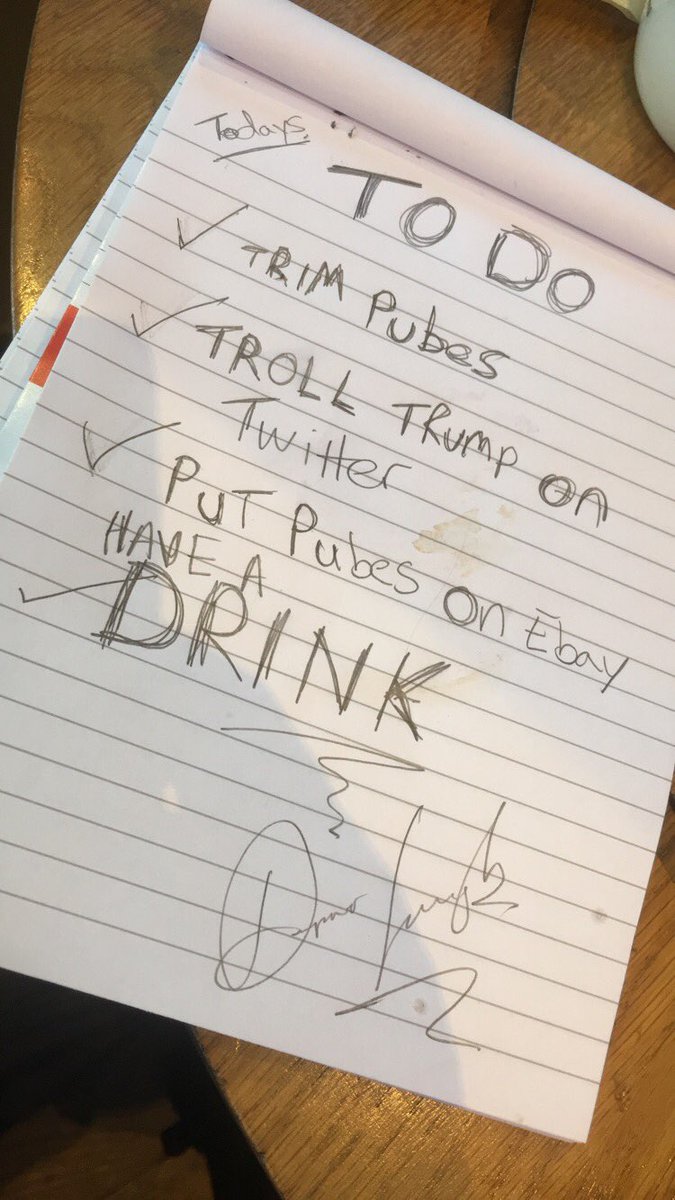 Todays
TO DO
TRIM Pubes
TROLL TRUMP ON
Twitter
PUT Pubes ON Ebay
HAVE A
DRINK